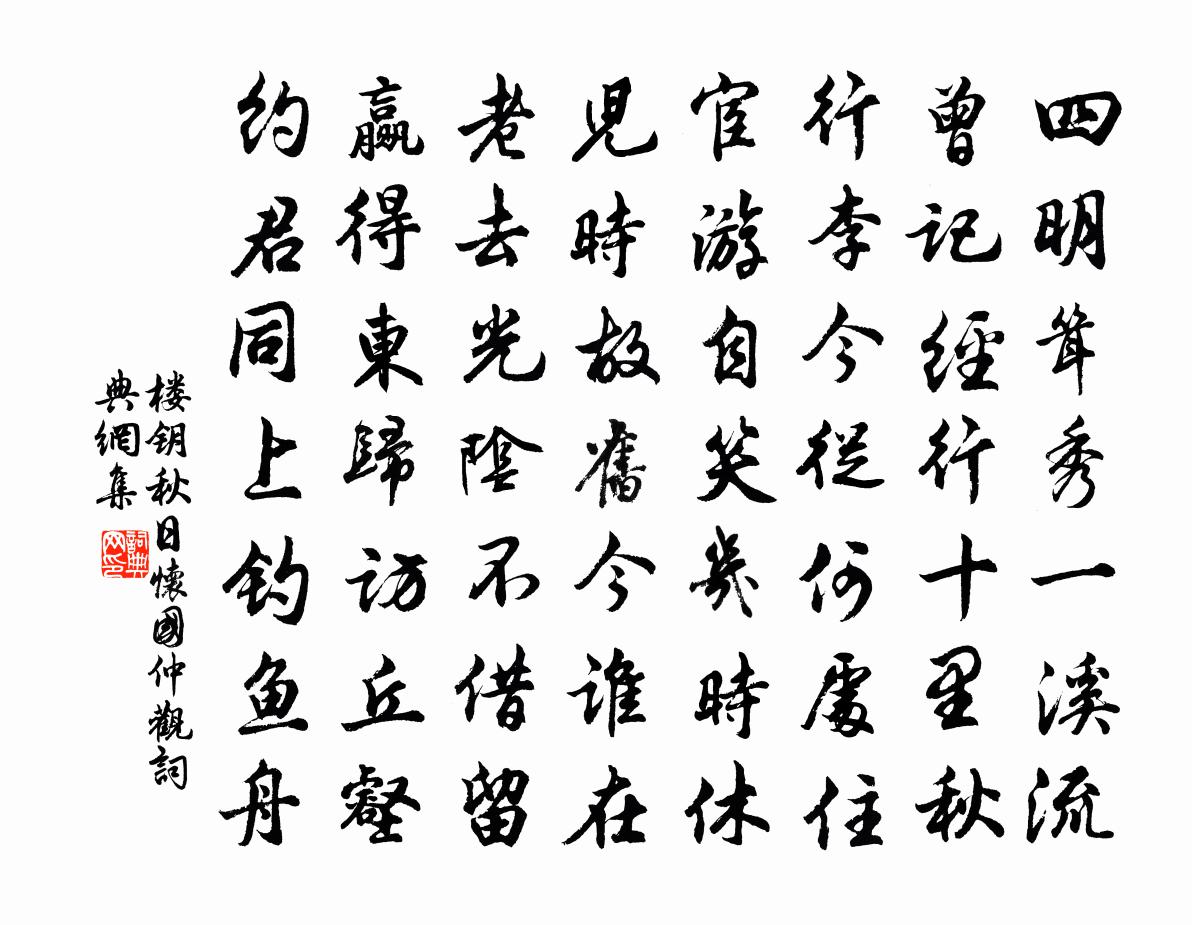 四明耸秀一溪流
曾记經行十里秋
行李今從何處住
宦游自笑幾時休
兒時故舊今誰在
老去光陰不借留
贏得東歸訪丘壑
约君同上钓鱼舟
楼钥秋日懷國仲觀詞
典網集
詞典
网印